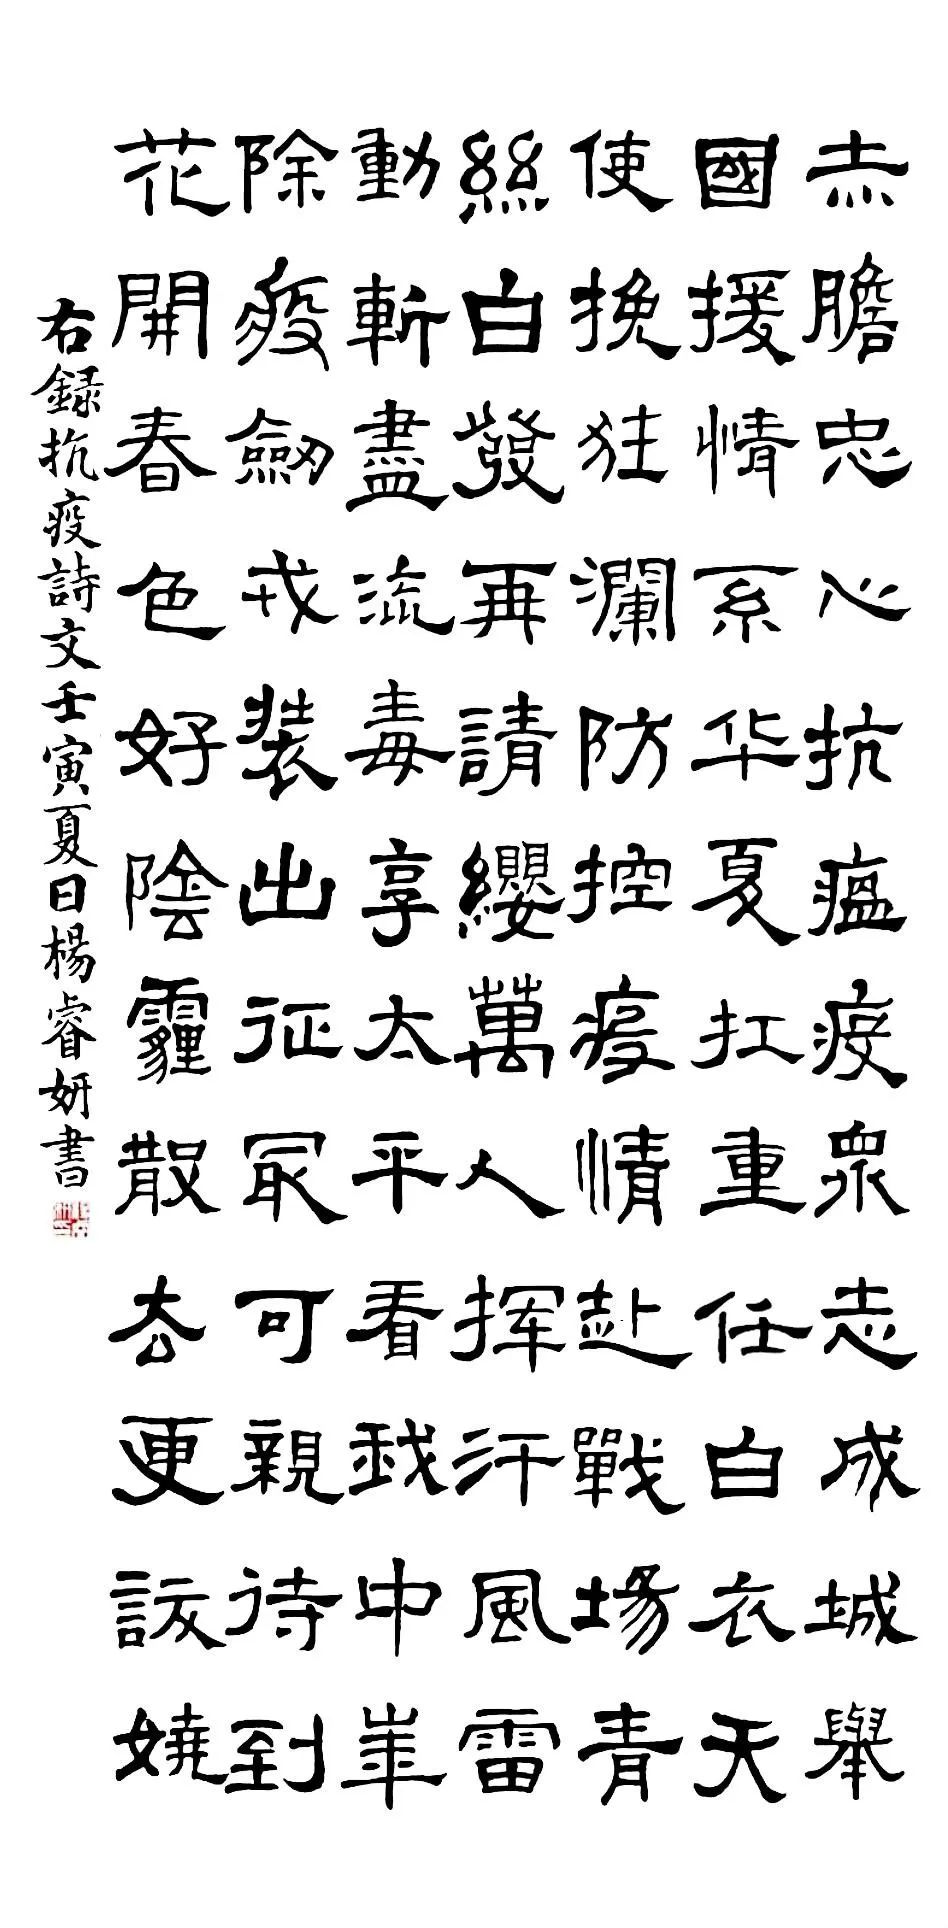 赤膽忠心抗瘟疫眾志成城舉
國援情系华夏扛重任白衣天
使挽狂瀾防控疫情赴戰場青
絲白發再請纓萬人挥汗風雷
動斬盡流毒享太平看我中崋
除疫劒戎装出征冣可親待到
花開春色好陰霾散去更該嬈
右録抗疫詩文壬寅夏日楊睿妍書